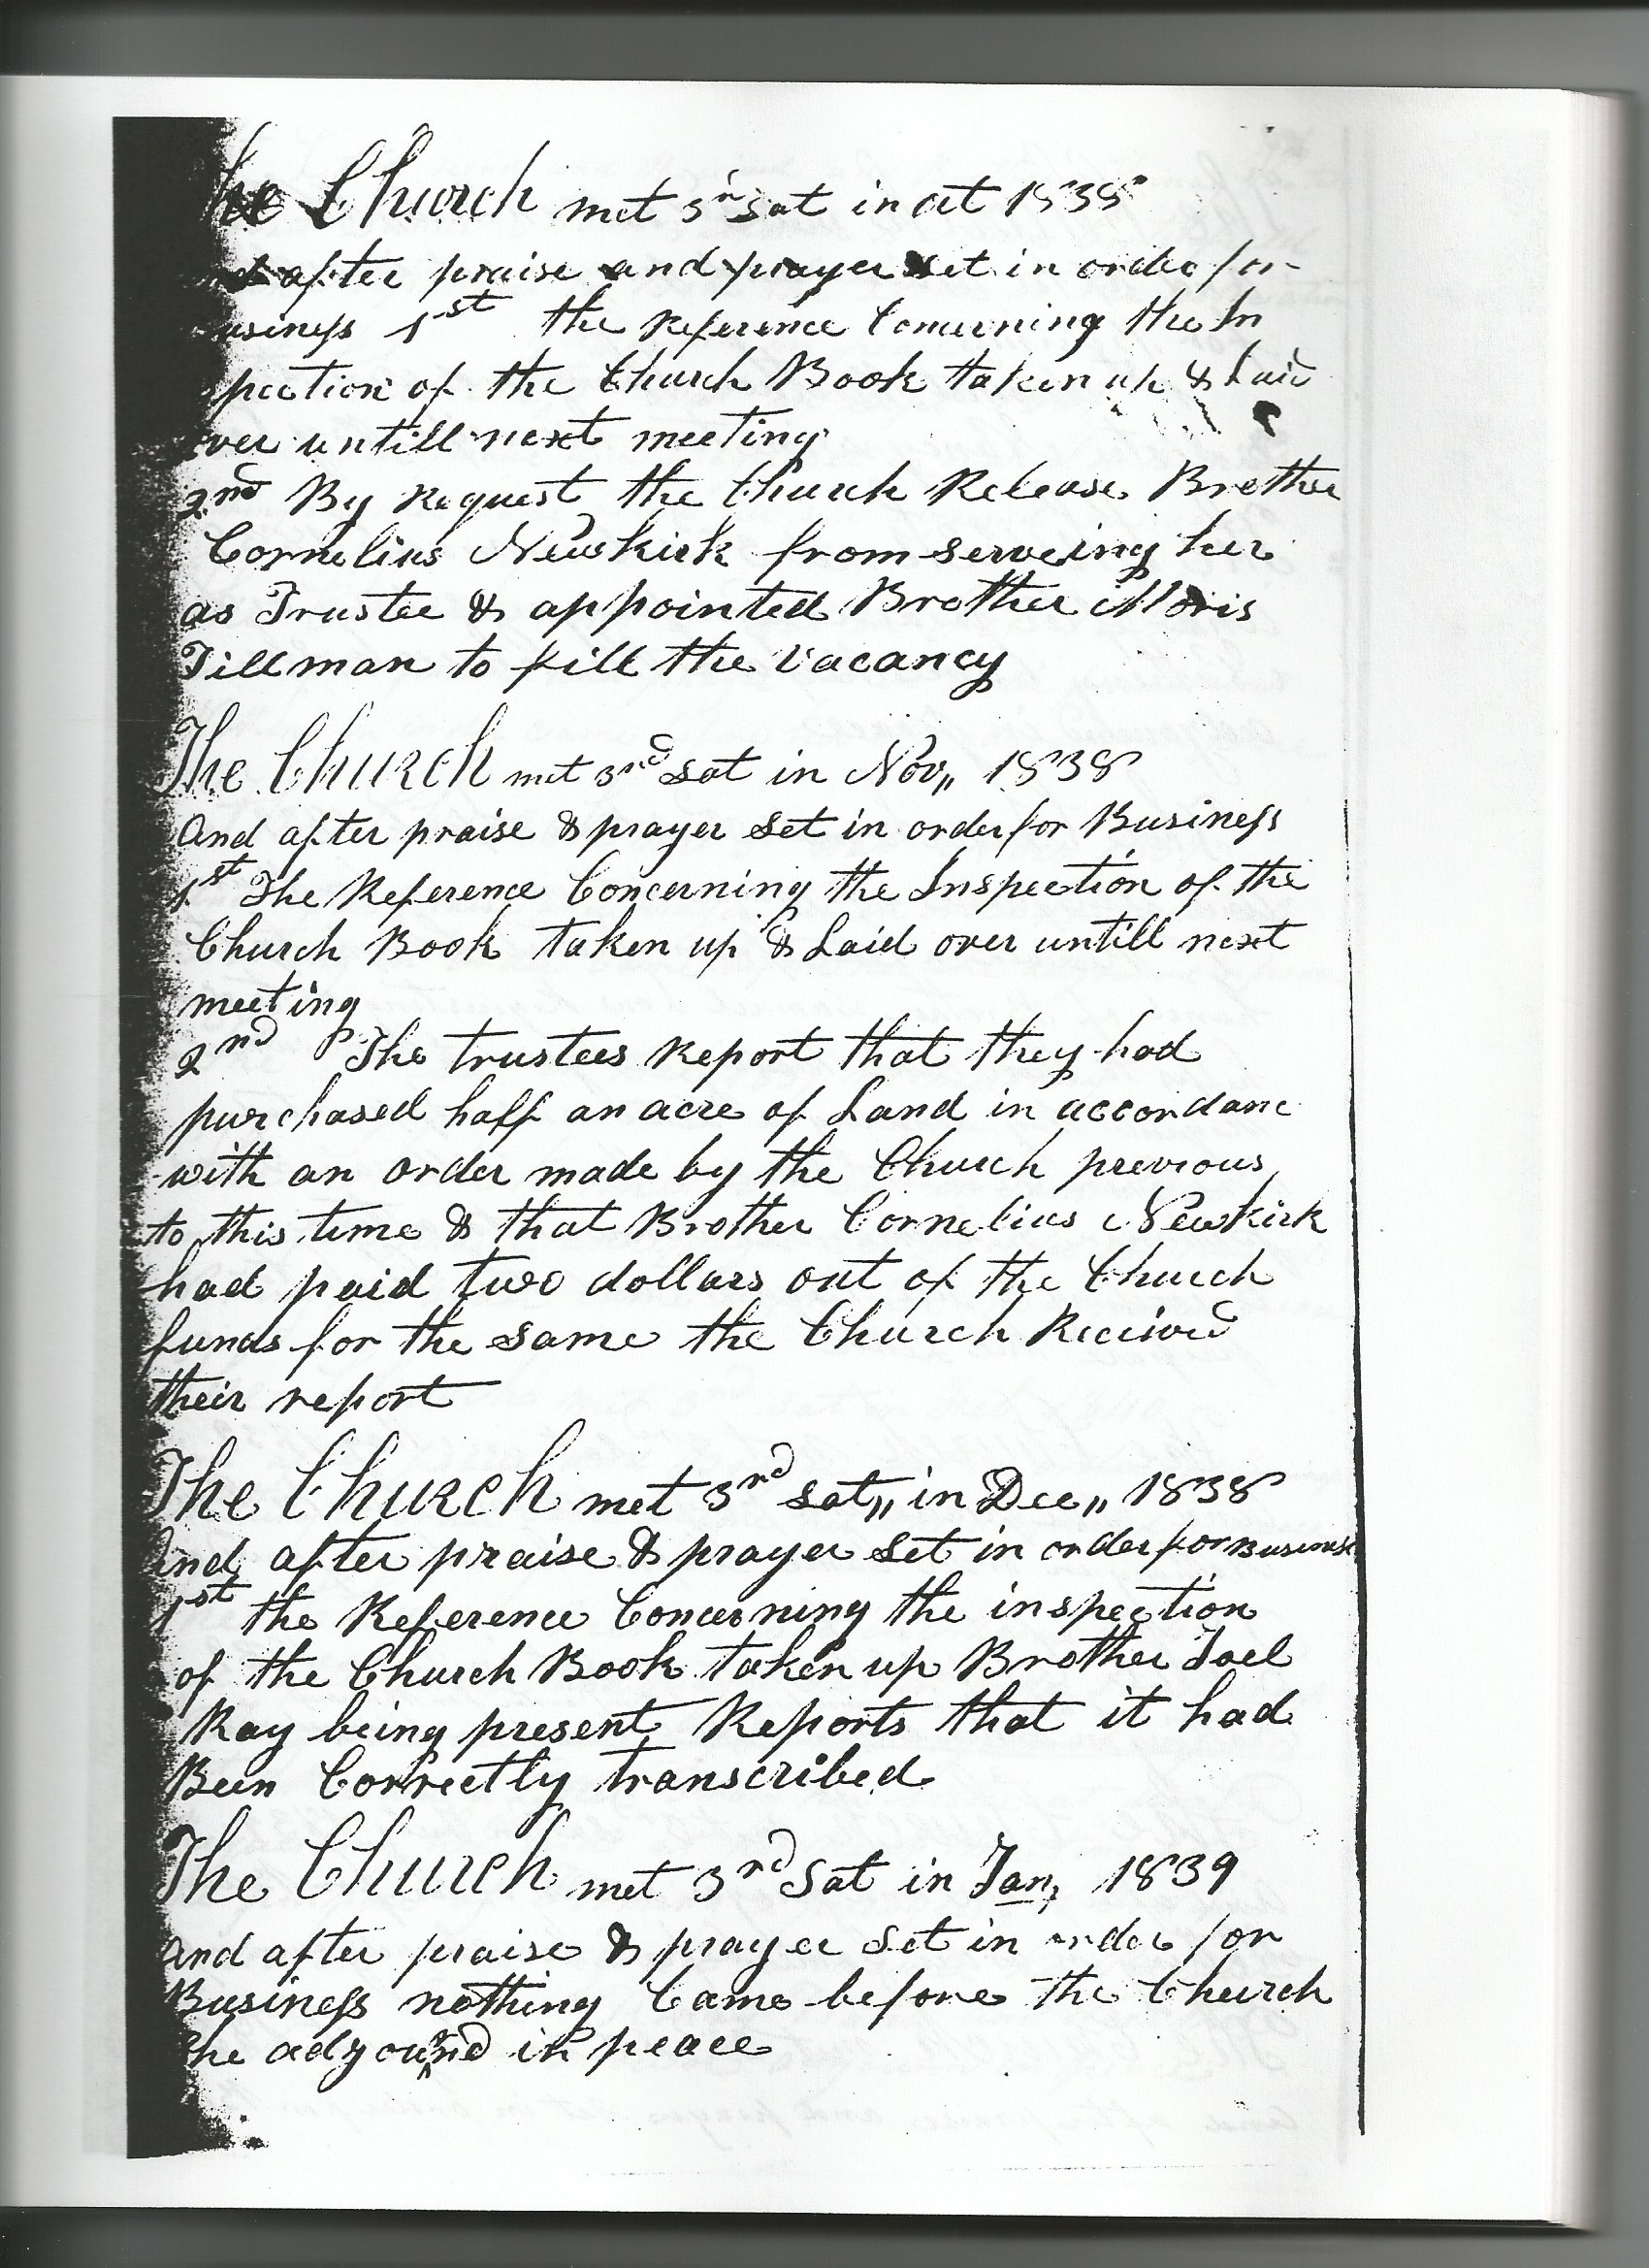 he Church met 3rd Sat in oct 1838
and after praise and prayer set in order for
usiness 1st the Reference Concerning the In
spection of the Church Book taken up & Laid
over untill next meeting
2nd By Request the Church Release Brother
Cornelius Newkirk from serveing her
as Trustee & appointed Brother Moris
Tillman to fill the vacancy
The Church met 3rd Sat in Nov,, 1838
And after praise & prayer set in order for Business
1st The Reference Concerning the Inspection of the
Church Book taken up & Laid over untill next
meeting
2nd The trustees Report that they had
purchased half an acre of Land in accordanc
with an order made by the Church previous
to this time & that Brother Cornelius Newkirk
had paid two dollars out of the Church
funds for the same the Church Received
their report
The Church met 3rd Sat,, in Dec,, 1838
And after praise & prayer set in order for Business
1st the Reference Concerning the inspection
of the Church Book taken up Brother Joel
Ray being present Reports that it had
Been Correctly transcribed
The Church met 3rd Sat in Jan, 1839
and after praise & prayer set in order for
Business nothing Came before the Church
She adyournd in peace